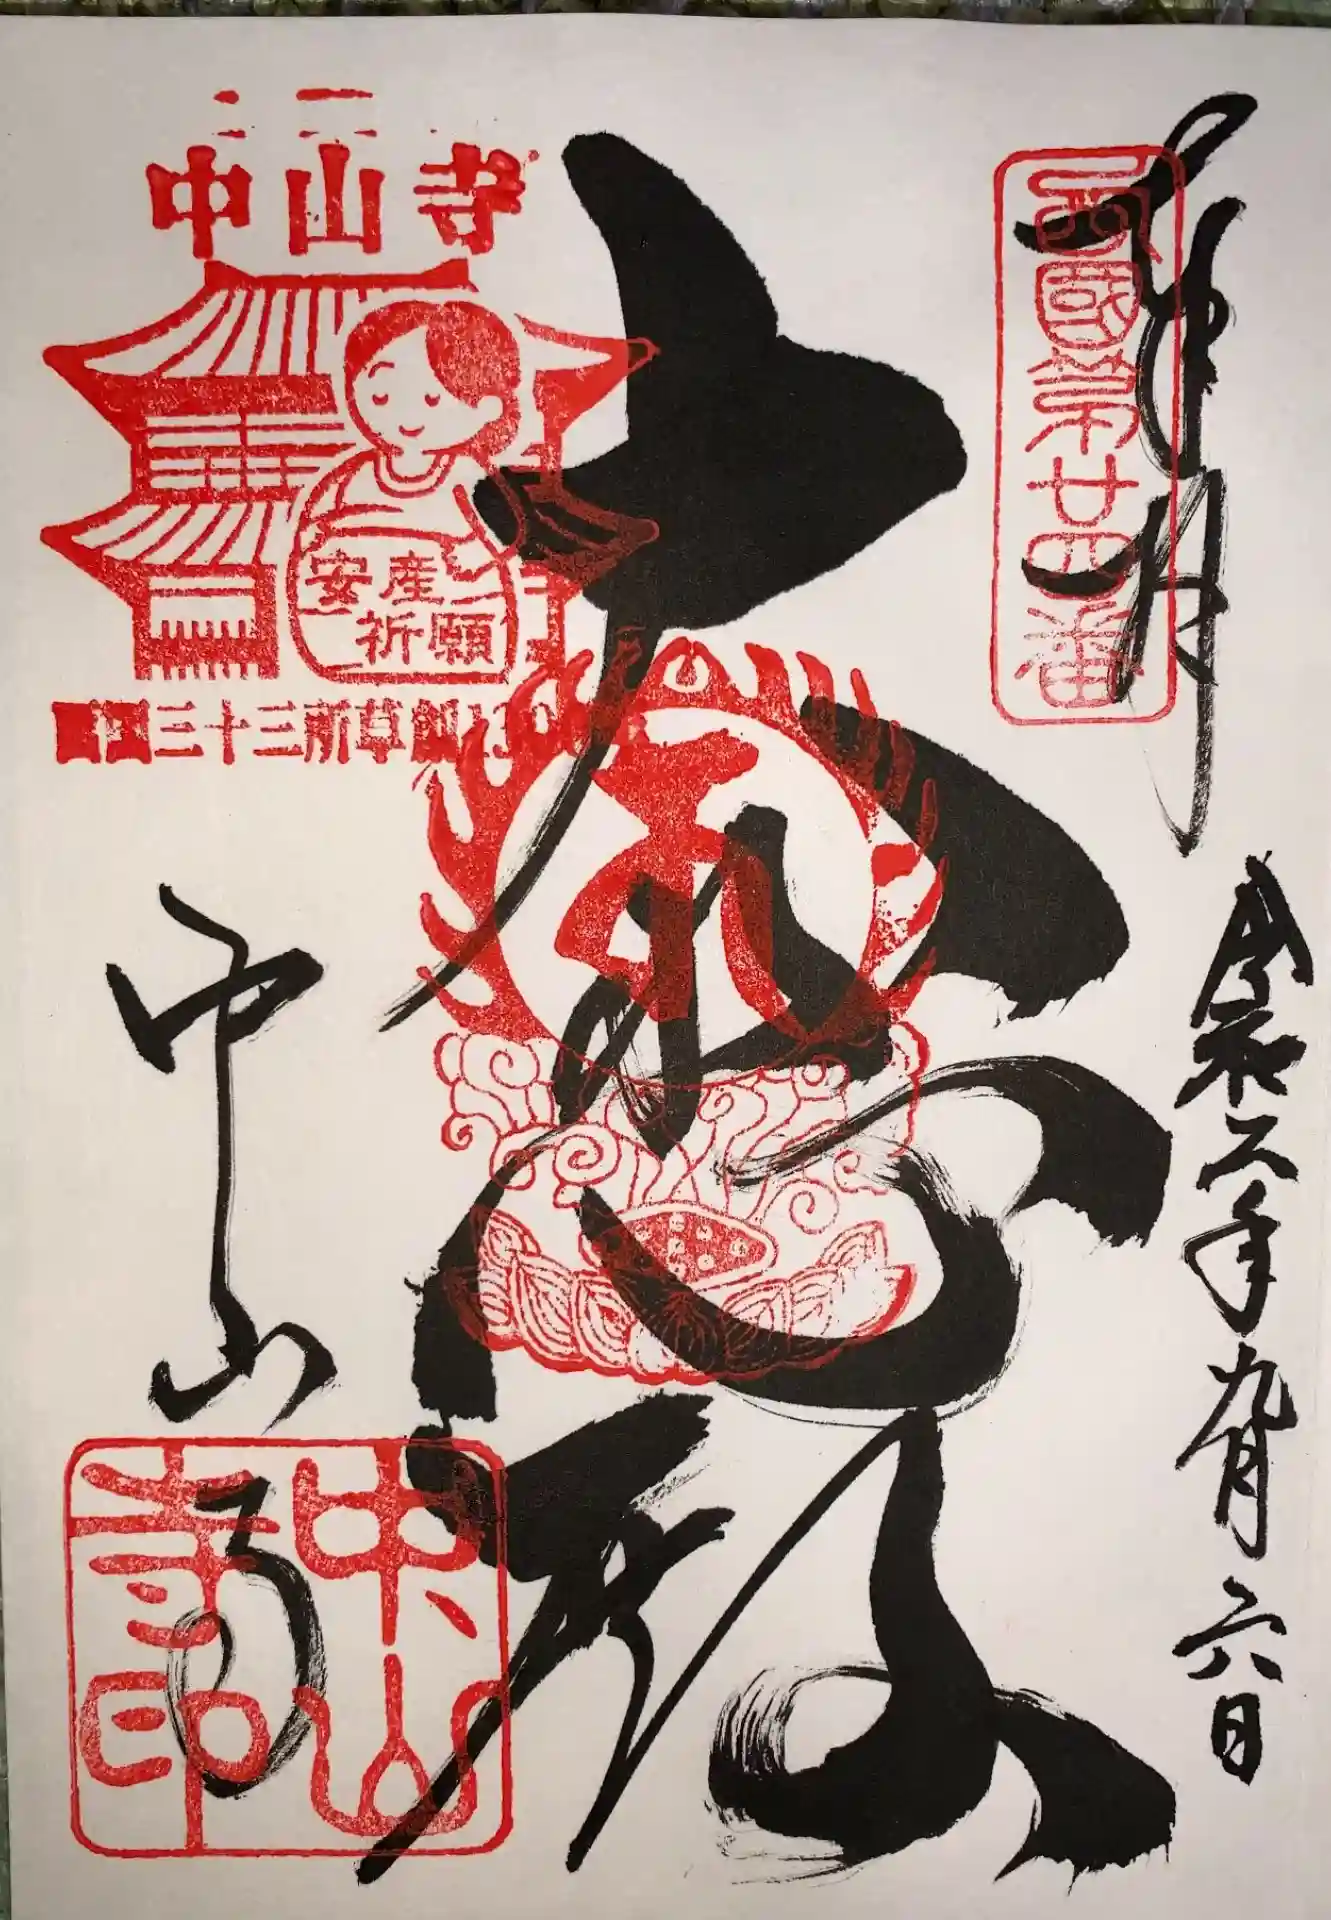 奉拝
西國第廿四番
令和二年九月六日
大悲殿
中山寺
安産
祈願
西国三十三所草創1300
中山寺
中山寺印